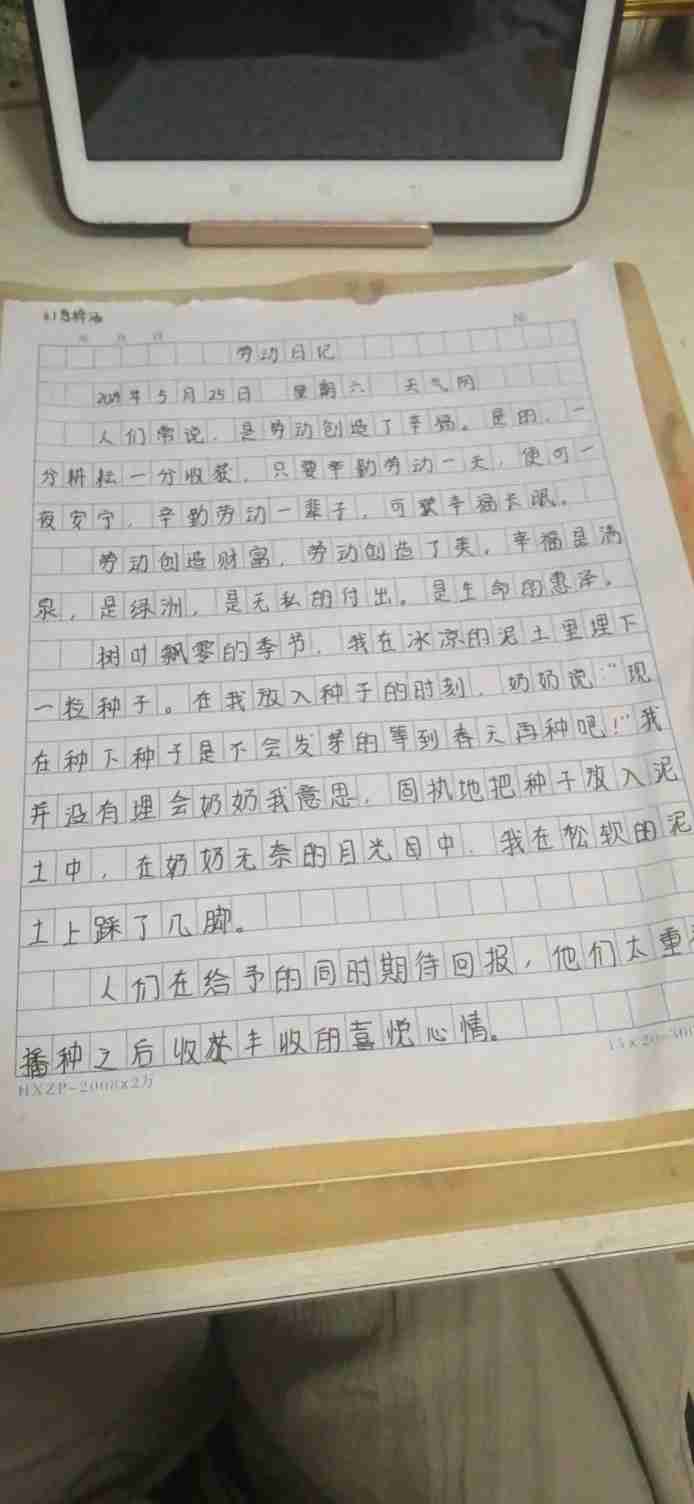 劳动日记
年5月25日 星期六 天气阴
人们常说，是劳动创造了幸福。是的，一
分耕耘一分收获，只要辛勤劳动一天，便可一
夜安宁，辛勤劳动一辈子，可获幸福长眠。
劳动创造财富，劳动创造了美，幸福是清
泉，是绿洲，是无私的付出。是生命的惠泽。
树叶飘零的季节，我在冰凉的泥土里埋下
一粒种子。在我放入种子的时刻，奶奶说：“现
在种下种子是不会发芽的等到春天再种吧！”我
并没有理会奶奶我意思，固执地把种子放入泥
土中，在奶奶无奈的目光目中，我在松软的泥
土上踩了几脚。
人们在给予的同时期待回报，他们太重
播种之后收获丰收的喜悦心情。
HXZP-2008x2万
15×20=300